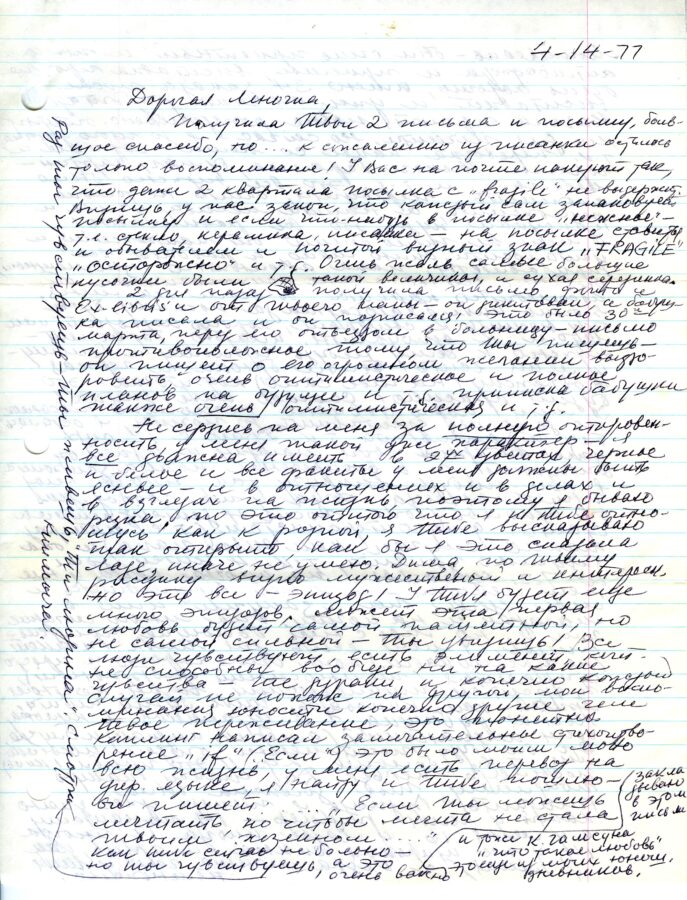 4-14-77
Дорогая Леночка,
Получила Твои 2 письма и посылку, боль-
шое спасибо, но... к сожалению из писанки осталось
только воспоминание! У Вас на почте пакуют так,
что даже 2 квартала посылка с "fragile" не выдержит.
Видишь, у нас закон, что каждый сам запаковывает
посылку и если что-нибудь в посылке "нежное" -
т.е. стекло, керамика, писанка - на посылке ставится
и обывателем и почтой видный знак "FRAGILE"
"осторожно" и т.д. Очень жаль самые большие
кусочки были такой величины и сухая серединка.
2 дня назад получила письмо
Ex-libris'ы от твоего папы - он диктовал а бабуш-
ка писала и он подписался! Это было 30го
марта, перед его отъездом в больницу - письмо
противоположное тому, что ты пишешь -
он пишет о его огромном желании выздо-
роветь, очень оптимистическое и полное
планов на будущее и т.д. приписка бабушки
также очень оптимистическая и т.д.
Не сердись на меня за полную откровен-
ность, у меня такой уже характер - я
все должна иметь в 2ух цветах черное
и белое и все факты у меня должны быть
ясные - и в отношениях и в делах и
в взглядах на жизнь поэтому я бываю
резка, но это оттого что я к тебе отно-
шусь, как к родной, я тебе высказываю
так открыто как бы я это сказала
Ладе, иначе не умею. Дима, по твоему
рисунку видно мужественный и интересн.
но это все - эпизод! У тебя будет еще
много эпизодов. Может эта первая
любовь будет самой памятной, но
не самой сильной - ты увидишь! Все
люди чувствуют, есть элемент кот.
не способны вообще ни на какие
чувства - и конечно каждый
случай не похож на другой, мои воспо-
минания юности конечно другие чем
твое переживание, это понятно
Киплинг написал замечательное стихотво-
рение "if" (Если) это было моим мото
всю жизнь, у меня есть перевод на
укр. языке, я найду и тебе пошлю -
он пишет: "... Если ты можешь
мечтать но чтобы мечта не стала
твоим хозяином....."
как тебе сейчас не больно -
но ты чувствуешь, а это очень важно
закла
дываю
в этом
письм
и тоже К. Гамсуна
"что такое любовь"
это еще из моих юнош.
дневников.
Раз ты чувствуешь - ты живешь, ты любила". Смотри
Киплинга!